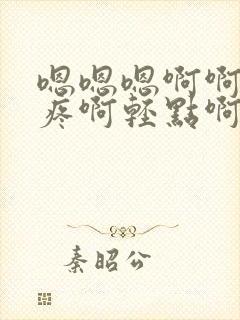 嗯嗯嗯啊啊
疼啊轻點啊
秦昭公